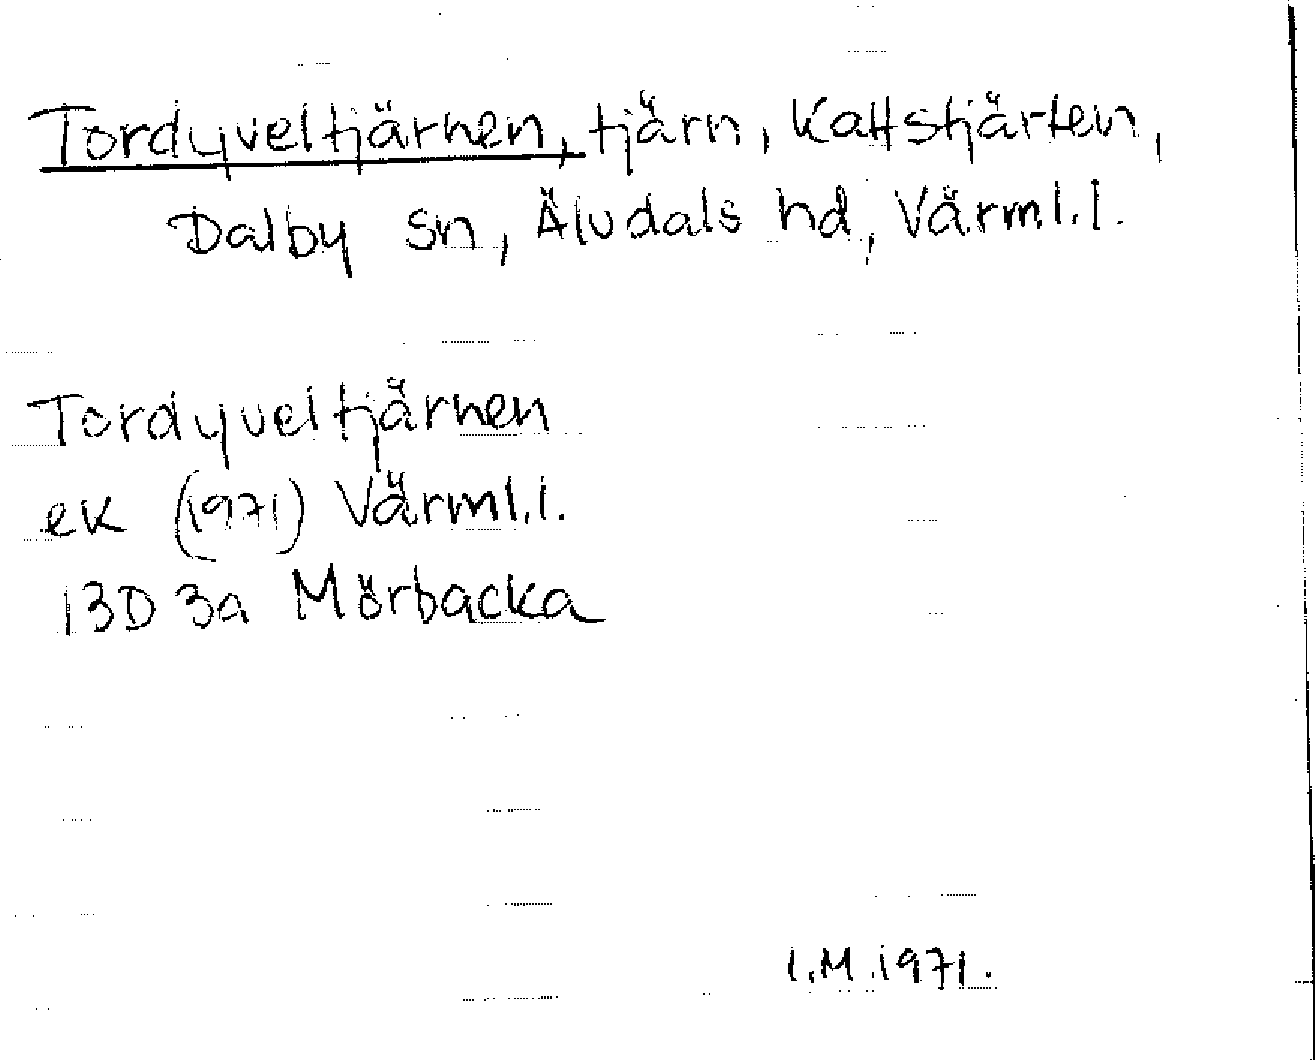 Tordyveltjärnen, tjärn, Kattstjärten,
Dalby sn, Älvdals hd, Värml.l.
Tordyveltjärnen
ek (1971) Värml.l.
13D 3a Mörbacka
I.M.1971.